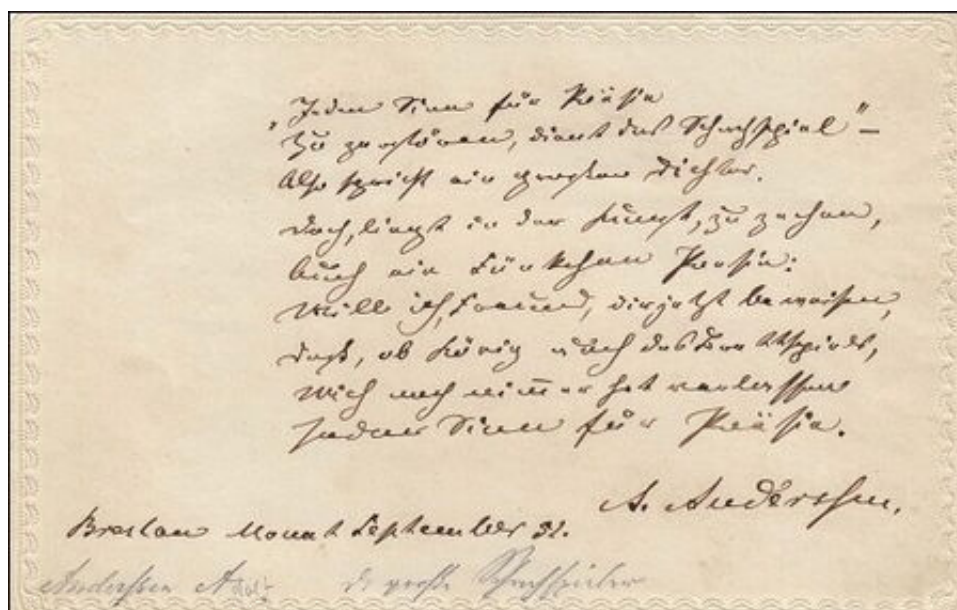 „Jeden Sinn für Poësie
Zu zerstören, dient das Schachspiel“ –
Also spricht ein großer Dichter.
Doch, liegt in der Kunst, zu zechen,
Auch ein Fünkchen Poesie:
Will ich, Freund, dir jetzt beweisen,
Daß, ob König auch des Brettspiels,
Mich noch nimmer hat verlassen
Jeder Sinn für Poësie.
A. Anderssen.
Breslau Monat September
Anderssen Adolf große Schachspieler